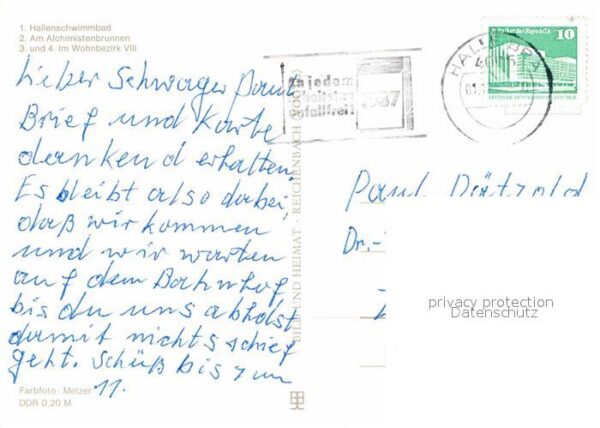 1. Hallenschwimmbad
2. Am Alchimistenbrunnen
3. und 4. Im Wohnbezirk VIII
Lieber Schwager Paul
Brief und Karte
dankend erhalten.
Es bleibt also dabei,
daß wir kommen
und wir warten
auf dem Bahnhof
bis du uns abholst
damit nichts schief
geht. Schüß bis zum
11.
Farbfoto: Melzer
DDR 0,20 M
BILD UND HEIMAT · REICHENBACH
1987
HALLE
10
Paul
Dr.-
privacy protection
Datenschutz